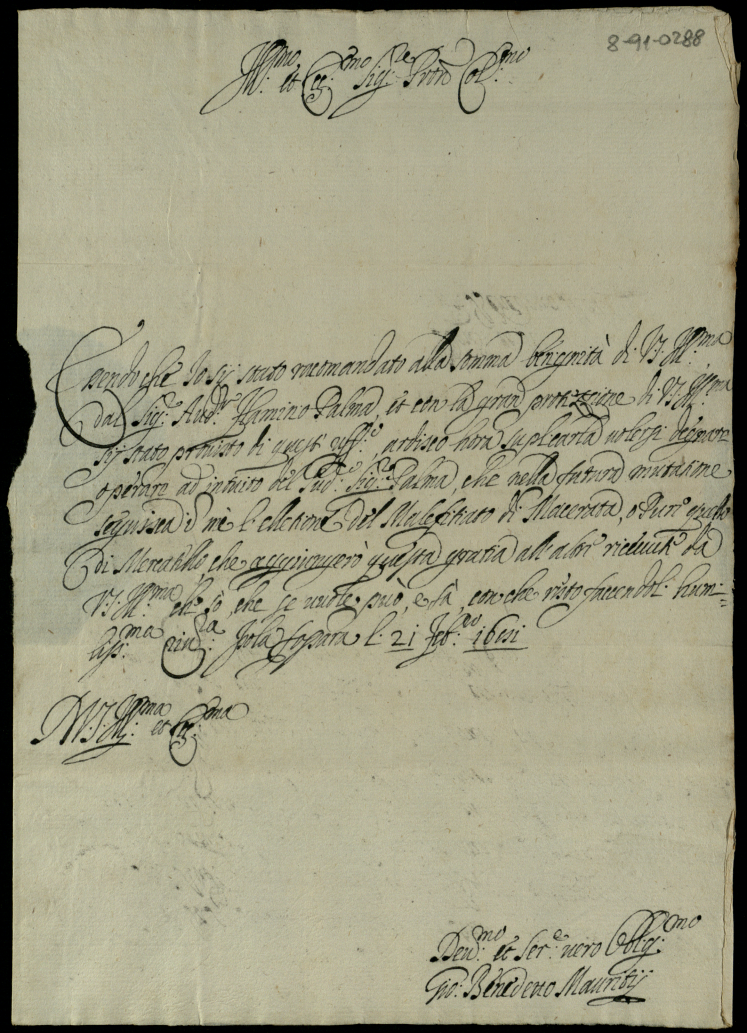 8-91-0288
Ill:mo et Ecc:mo Sig:re Prōn Col:mo
Essendo che Io sij stato racomandato alla somma benignità di V.S. Ill:ma
dal Sig:r Aud:r Flaminio Palma, et con la gran protezzione di V.S. Ill:ma
sij stato provisto di quest'uff:o, ardisco hora suplicarla volersi
operare ad intuito del Sud:o Sig:re Palma, che nella futura mutatione
in me l'elletione del Malefitiato di Macerata, o
di Mercatello che aggiungerò questa gratia all'altre ricevute da
V.S. Ill:ma che so, che se vuole può, e sà, con che resto facendoli hum-
liss:ma riv:za Isola fossara li 21 Feb:ro 1651
D V.S. Ill:ma et Ecc:ma
Dev:mo et Ser:e vero Oblig:mo
Gio: Benedetto Mauritij